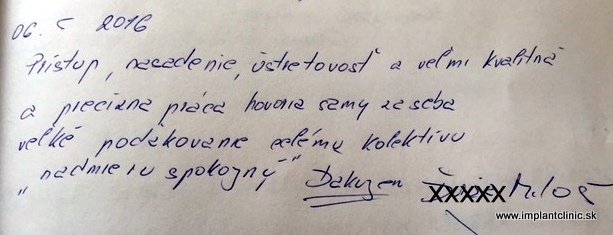 06. 2016
Prístup, nasadenie, ústretovosť a veľmi kvalitná
a precízna práca hovoria samy za seba
veľké poďakovanie celému kolektívu
"nadmieru spokojný" Ďakujem XXXXX Miloš
www.implantclinic.sk